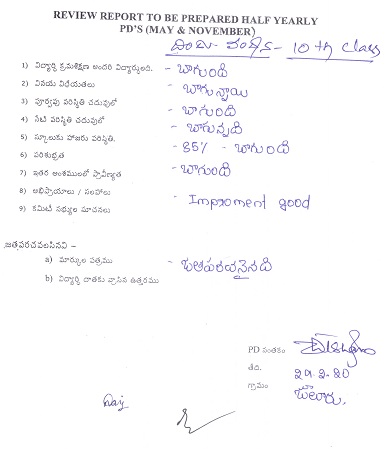 REVIEW REPORT TO BE PREPARED HALF YEARLY
PD'S (MAY & NOVEMBER)
10th class
1) విద్యార్థి క్రమశిక్షణ అందరి విద్యార్థులది. - బాగుంది
2) వినయ విధేయతలు - బాగున్నాయి
3) పూర్వపు పరిస్థితి చదువులో - బాగుంది
4) నేటి పరిస్థితి చదువులో - బాగున్నది
5) స్కూలుకు హాజరు పరిస్థితి. - 85% - బాగుంది
6) పరిశుభ్రత - బాగుంది
7) ఇతర అంశములలో ప్రావీణ్యత
8) అభిప్రాయాలు / సలహాలు - Improment good
9) కమిటీ సభ్యుల సూచనలు
జతపరచవలసినవి :-
a) మార్కుల పత్రము - జతపరచనైనది
b) విద్యార్థి దాతకు వ్రాసిన ఉత్తరము
PD సంతకం
తేది.
గ్రామం